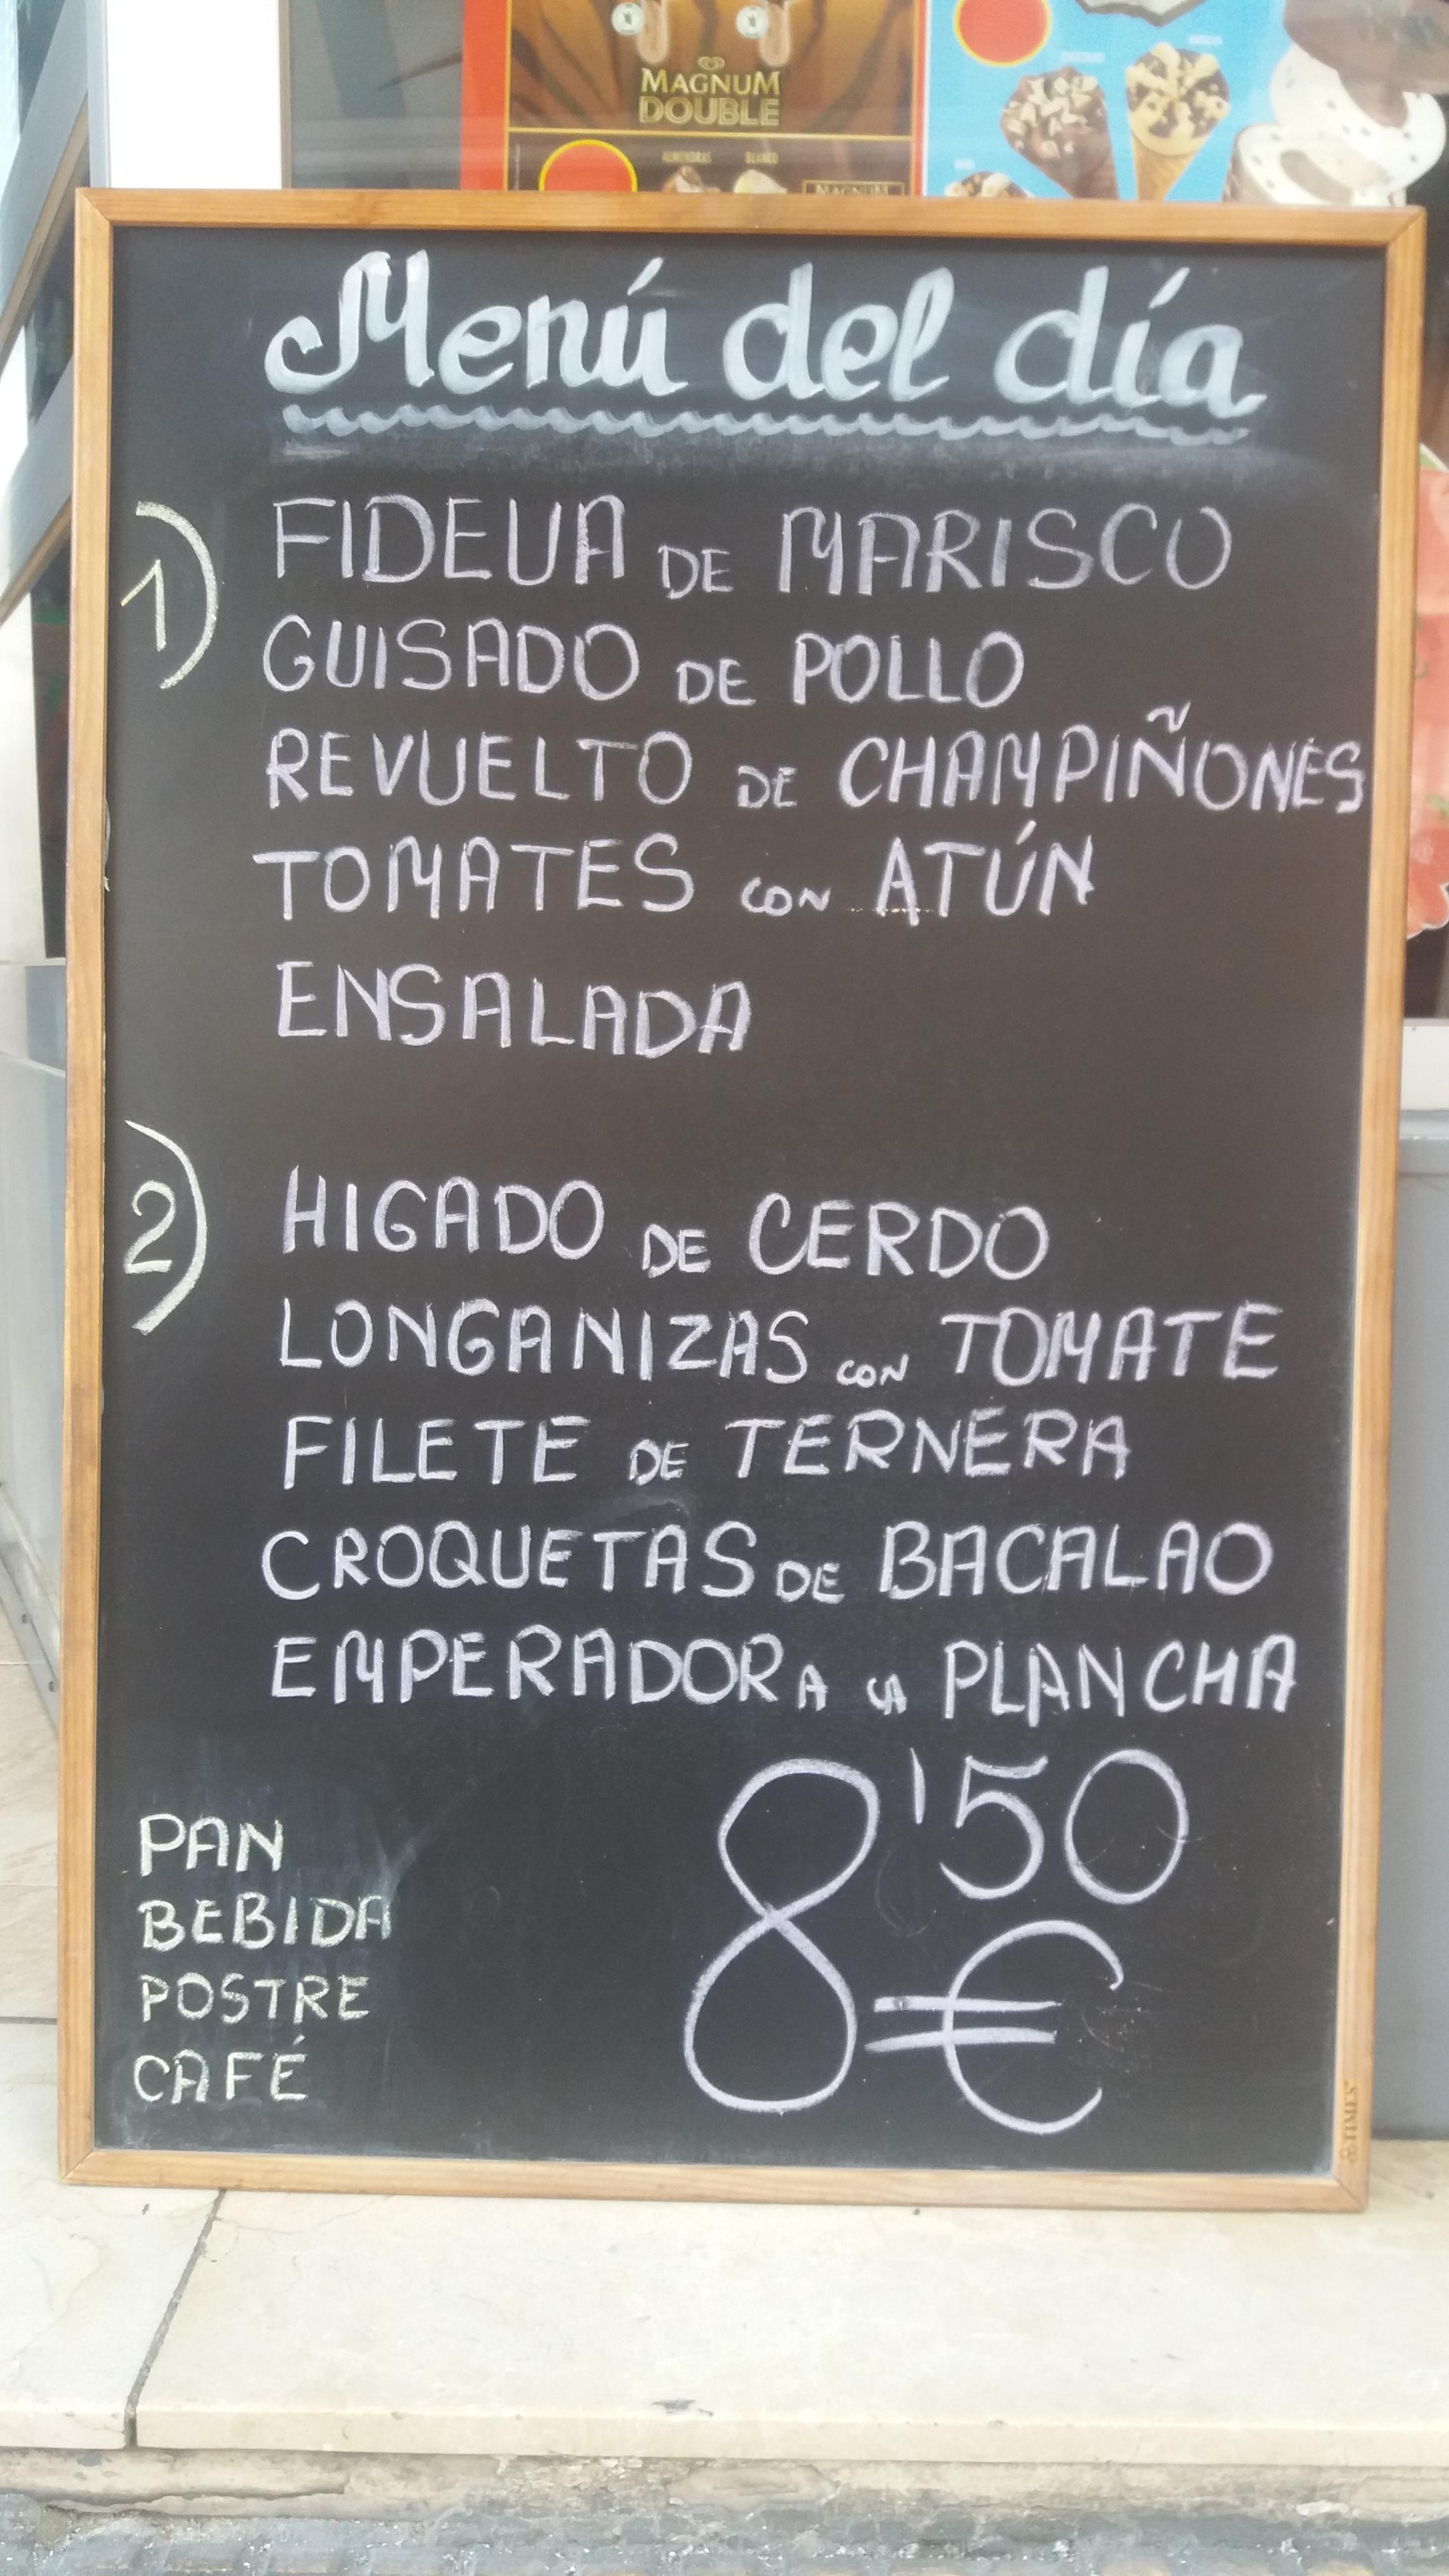 MAGNUM
DOUBLE
ALMENDRAS BLANCO
MAGNUM
Menú del día
1)
FIDEUA DE MARISCO
GUISADO DE POLLO
REVUELTO DE CHAMPIÑONES
TOMATES CON ATÚN
ENSALADA
2)
HIGADO DE CERDO
LONGANIZAS CON TOMATE
FILETE DE TERNERA
CROQUETAS DE BACALAO
EMPERADOR A LA PLANCHA
8'50
€
PAN
BEBIDA
POSTRE
CAFÉ
TIMES